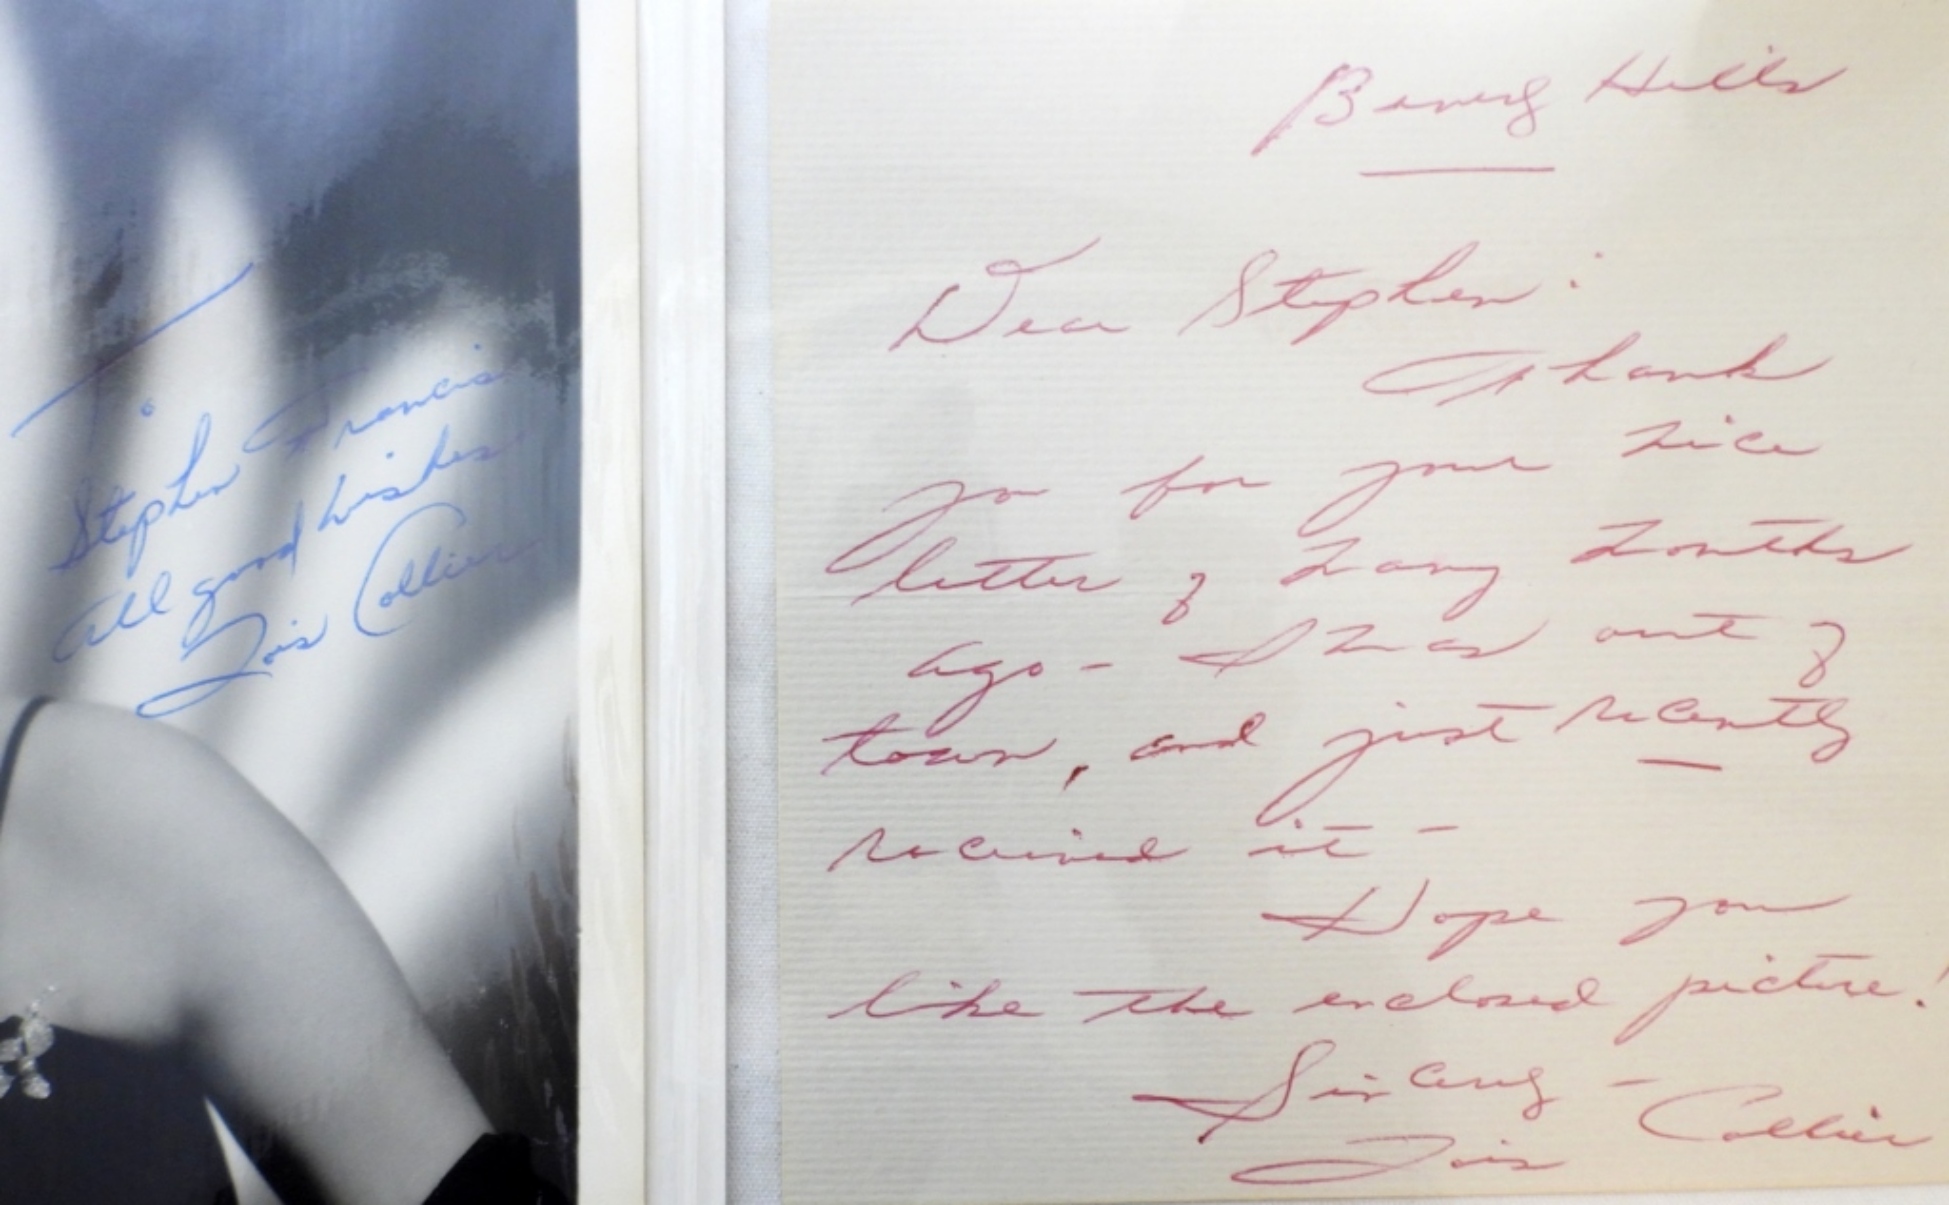 To
Stephen Francis
All good wishes
Lois Collier
Beverly Hills
Dear Stephen:
Thank
you for your nice
letter of many months
ago - I was out of
town, and just recently
received it -
Hope you
like the enclosed picture!
Sincerely -
Lois Collier